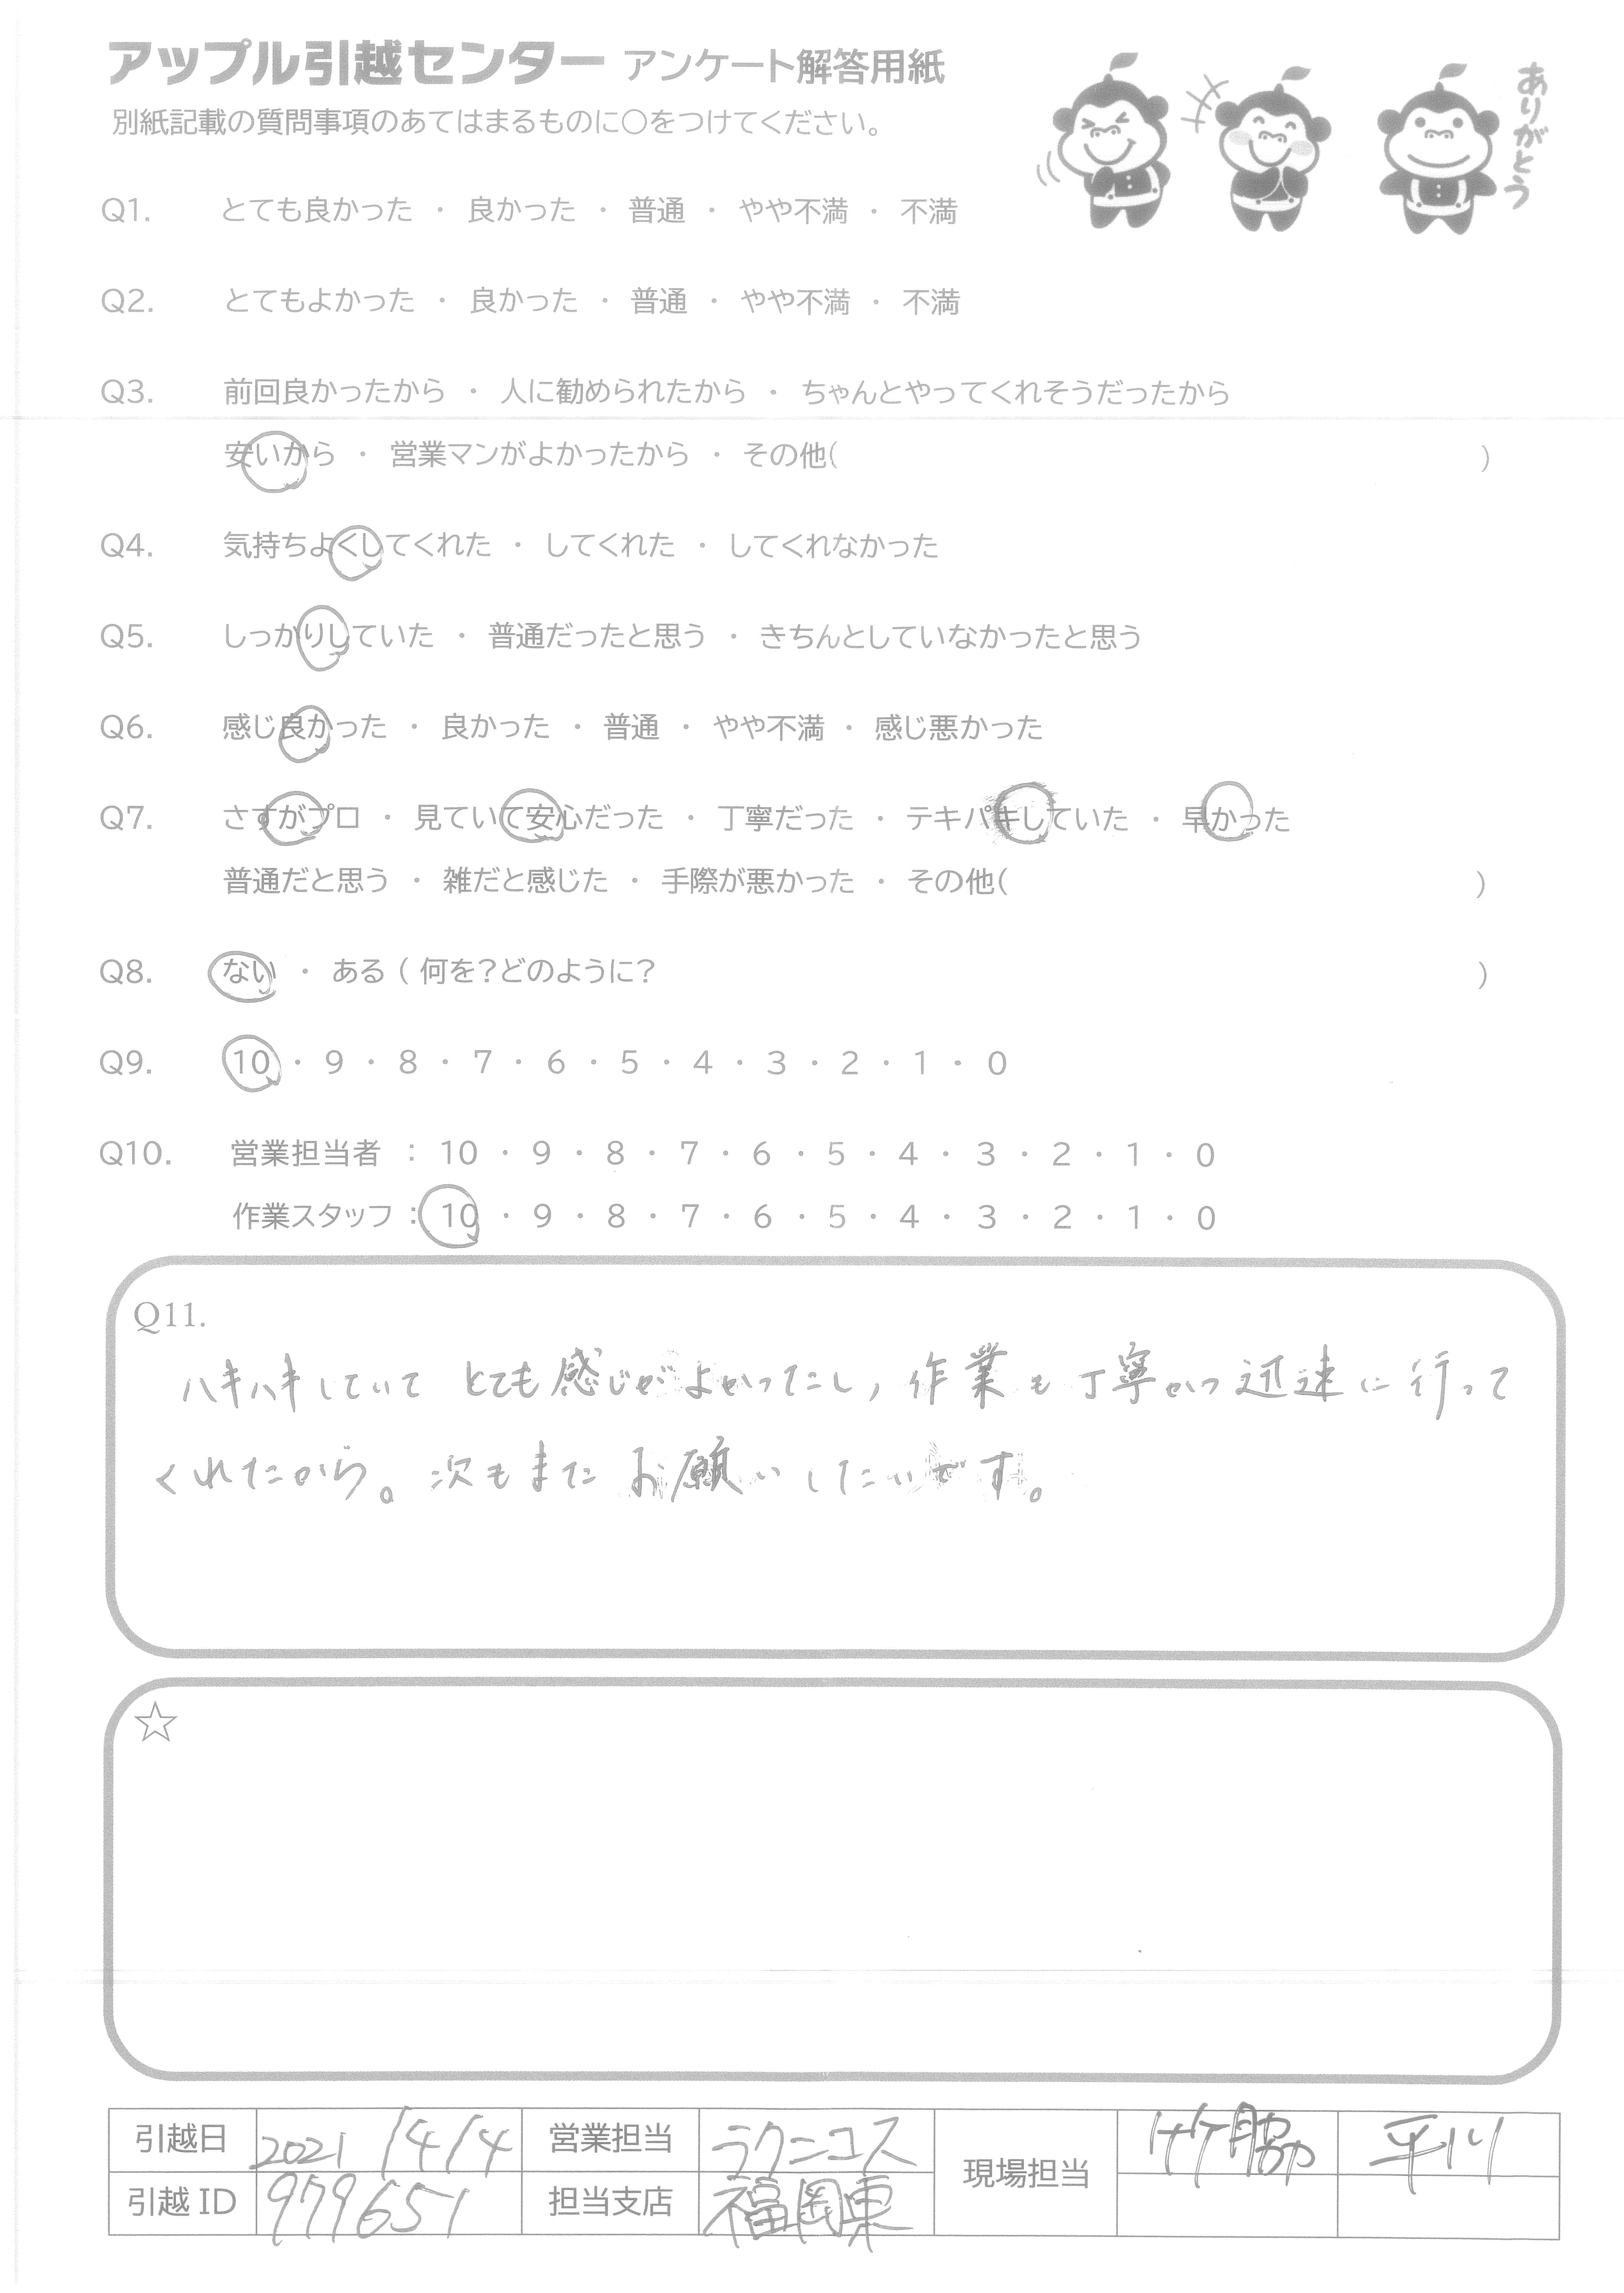 アップル引越センター アンケート解答用紙
ありがとう
別紙記載の質問事項のあてはまるものに○をつけてください。
Q1. とても良かった ・ 良かった ・ 普通 ・ やや不満 ・ 不満
Q2. とてもよかった ・ 良かった ・ 普通 ・ やや不満 ・ 不満
Q3. 前回良かったから ・ 人に勧められたから ・ ちゃんとやってくれそうだったから
安いから ・ 営業マンがよかったから ・ その他( )
Q4. 気持ちよくしてくれた ・ してくれた ・ してくれなかった
Q5. しっかりしていた ・ 普通だったと思う ・ きちんとしていなかったと思う
Q6. 感じ良かった ・ 良かった ・ 普通 ・ やや不満 ・ 感じ悪かった
Q7. さすがプロ ・ 見ていて安心だった ・ 丁寧だった ・ テキパキしていた ・ 早かった
普通だと思う ・ 雑だと感じた ・ 手際が悪かった ・ その他( )
Q8. ない ・ ある ( 何を?どのように? )
Q9. 10 ・ 9 ・ 8 ・ 7 ・ 6 ・ 5 ・ 4 ・ 3 ・ 2 ・ 1 ・ 0
Q10. 営業担当者 : 10 ・ 9 ・ 8 ・ 7 ・ 6 ・ 5 ・ 4 ・ 3 ・ 2 ・ 1 ・ 0
作業スタッフ : 10 ・ 9 ・ 8 ・ 7 ・ 6 ・ 5 ・ 4 ・ 3 ・ 2 ・ 1 ・ 0
Q11.
ハキハキしていて とても感じがよかったし, 作業も丁寧かつ迅速に行って
くれたから。次もまたお願いしたいです。
☆
引越日 2021/4/4 営業担当 ラクニコス 現場担当 竹脇 平川
引越ID 979651 担当支店 福岡東